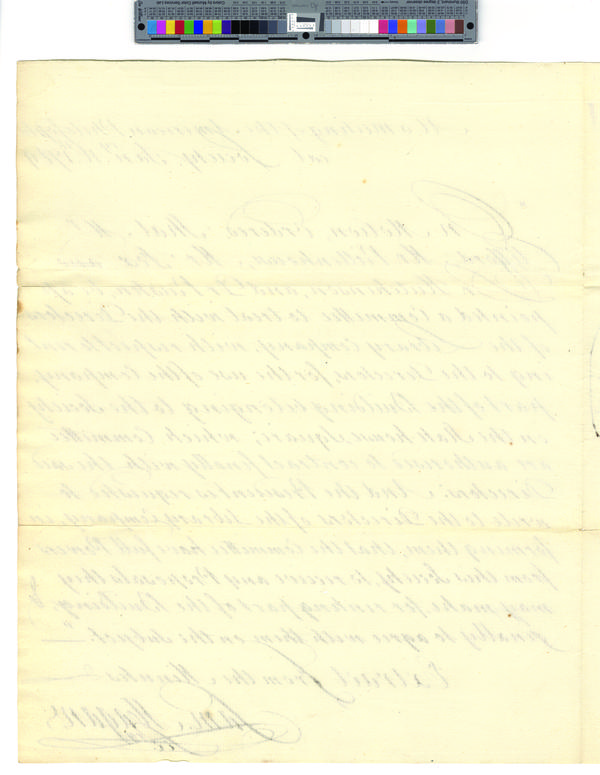 At a meeting of the American Philosophi
cal Society, Jany. 16. 1789
On Motion, Ordered, That Mr.
Rittenhouse, Mr.
Dr. Hutchinson, and Dr. be ap
pointed a Committee to treat with the Directors
of the Library Company, with respect to rent
ing to the Directors, for the use of the Company,
part of the Building belonging to the Society
on the State house Square; which Committee
are authorised to contract finally with the said
Directors. And the President is requested to
write to the Directors of the Library Company in
forming them, that the Committee have full Powers
from this Society, to receive any Proposals they
may make for renting part of the Building, &
finally to agree with them on the Subject."
Extract from the Minutes
Sam. Magaw
Sec